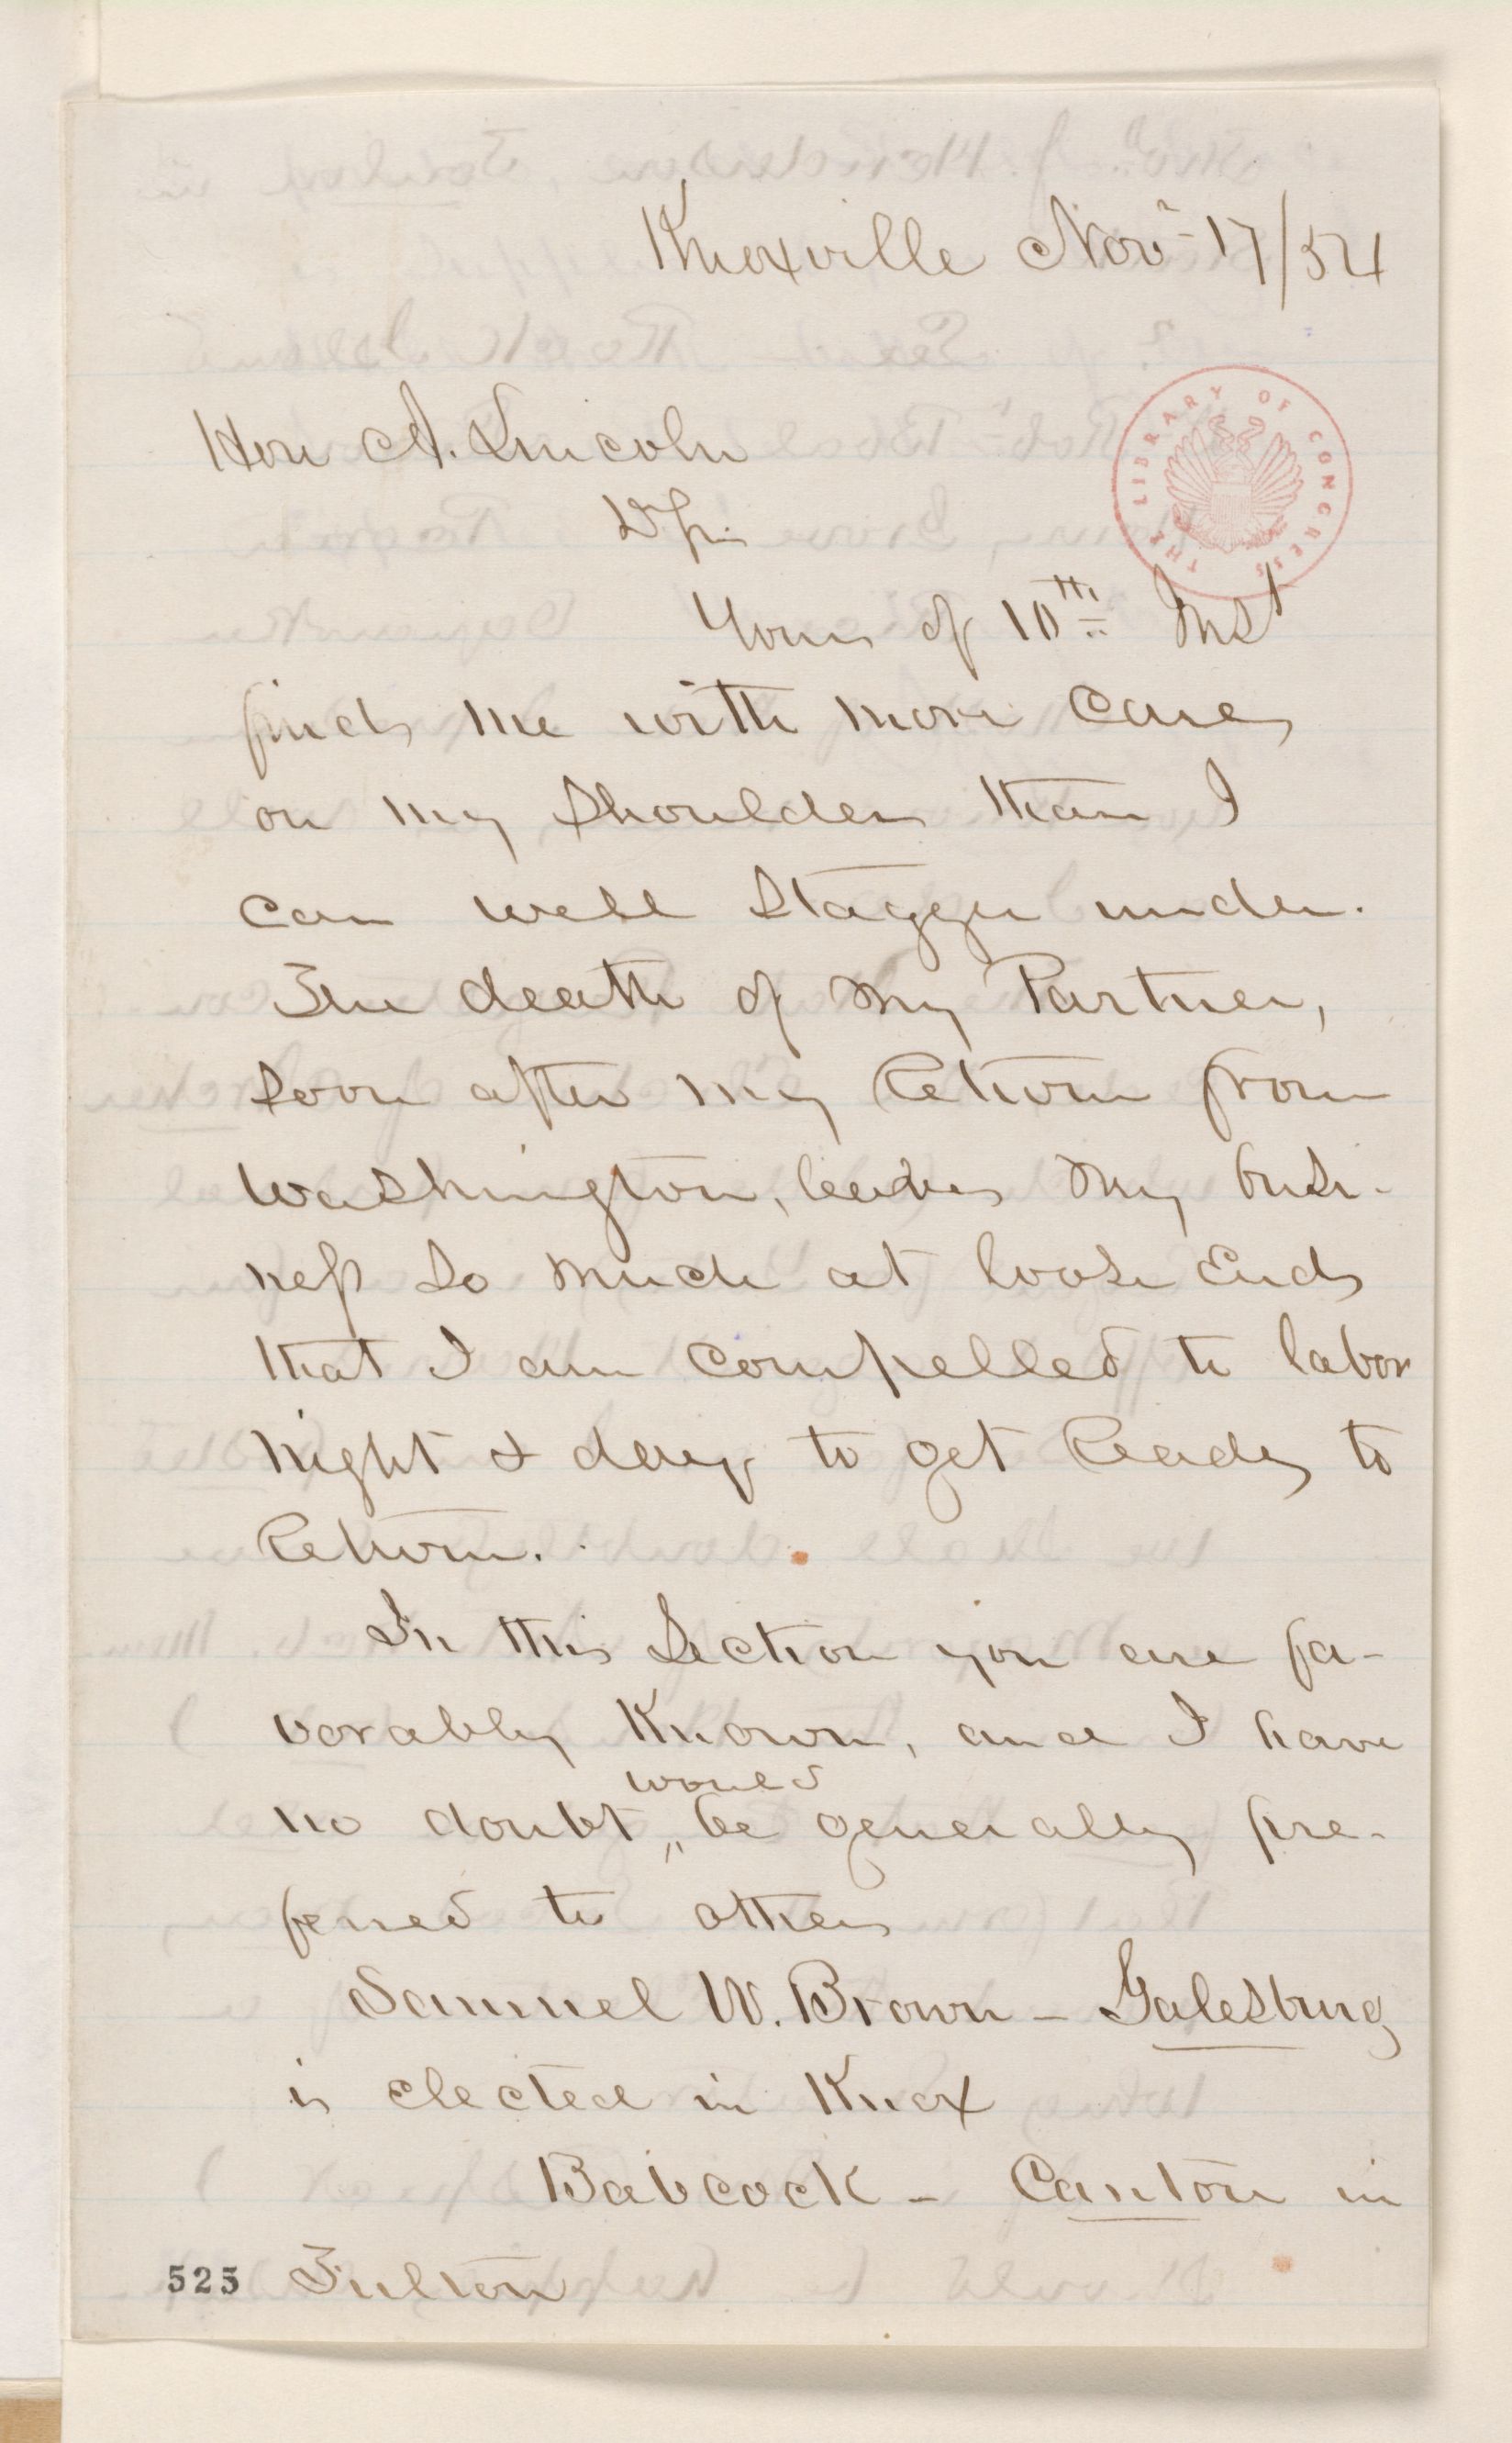 Knoxville Nov- 17/54
THE LIBRARY OF CONGRESS
Hon A. Lincoln
Dr Sir
Yours of 10th Inst
finds me with more cares
on my shoulders than I
can well stagger under.
The death of my Partner,
soon after my Return from
Washington, leaves my busi-
ness so much at loose Ends
that I am compelled to labor
night & day to get Ready to
Return.
In this Section you are fa-
vorably Known, and I have
would
no doubt, be generally pre-
ferred to others
Samuel W. Brown - Galesburg
is elected in Knox
Babcock - Canton in
525 Fulton